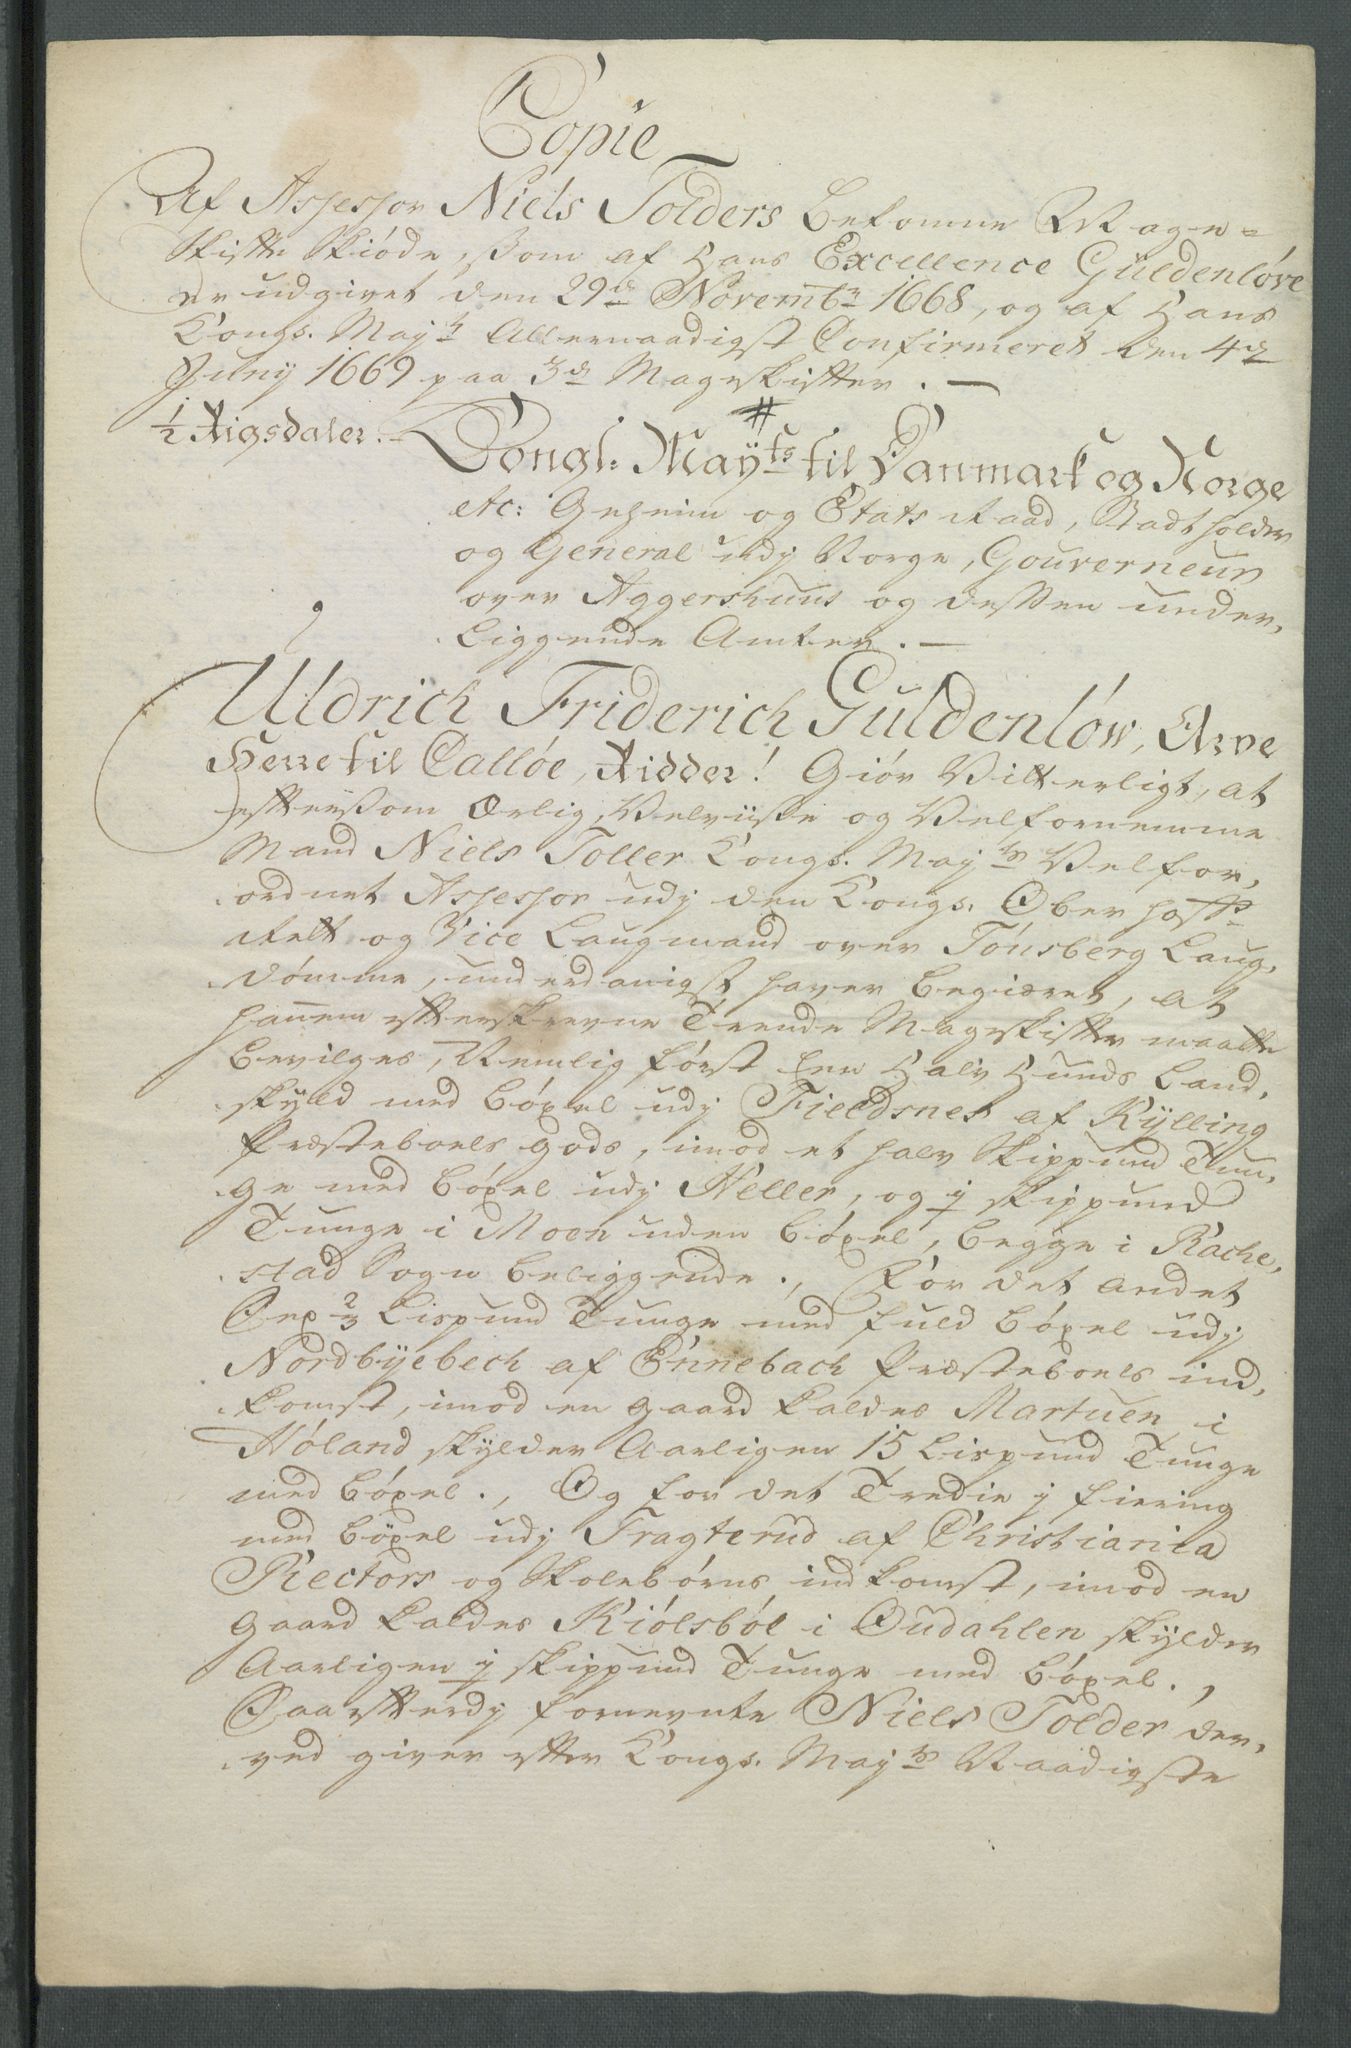 Copie
Af Assessor Niels Tolders bekomne Mage-
skifte Skiøde, som af Hans Excellence Güldenløve
er udgivet den 29de Novembr 1668, og af Hans
Kongs. Mayts Allernaadigst Confirmeret den 4de
Juny 1669 paa 3de Mageskifter. —
½ Rigsdaler. —
Kongl: Mayts til Danmark og Norge
etc: Geheim og Etats Raad, Stadtholder
og General udj Norge, Gouverneur
over Aggershuus og dessen under,
liggende Amter. —
Uldrich Friderich Guldenløw, Arve
Herre til Calløe, Ridder! Giør Vitterligt, at
eftersom Ærlig, Velviise og Velfornemme
Mand Niels Toller Kongs. Mayts Velfor,
ordnet Assessor udj den Kongs. Ober Hoff
Rett og Vice Laugmand over Tönsberg Laug,
dømme, underdanigst haver begiæret, at
hannem efterskrevne Trende Mageskifter maatte
bevilges, Nemlig først Een Halv Hunds Land,
skyld med bøxel udj Fieldsnes af Kylling
Præsteboels Gods, imod et halv Skippund Tun,
ge med bøxel udj Heller, og j skippund
Tunge i Moen uden bøxel, begge i Rache,
stad Sogn beliggende., For det andet
Sex ⅔ Lispund Tunge med fuld bøxel udj
Nordbyebech af Ennebach Præsteboels ind,
komst, imod en gaard kaldes Martuen i
Høland skylder Aarligen 15 Lispund Tunge
med bøxel., Og for det Tredie j fiering
med bøxel udj Fragterud af Christiania
Rectors og Skolebørns indkomst, imod en
gaard kaldes Kiölsböl i Oudahlen skylder
Aarligen j skippund Tunge med bøxel.,
Saa efterdj fornevnte Niels Tolder der,
ved giver efter Kongs. Mayts Naadigste